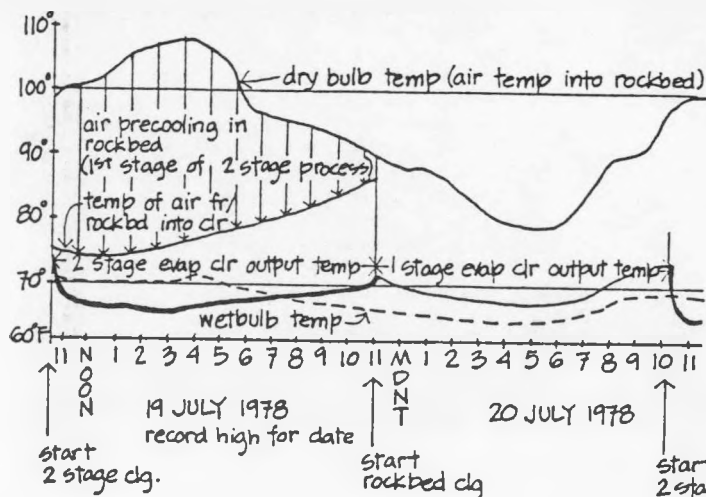 110°
dry bulb temp (air temp into rockbed)
100°
air precooling in
rockbed
90°
(1st stage of 2 stage process)
temp of air fr/
rockbd into clr
80°
2 stage evap clr output temp
1 stage evap clr output temp
70°
wetbulb temp
60°F
11 NOON 1 2 3 4 5 6 7 8 9 10 11 MDNT 1 2 3 4 5 6 7 8 9 10 11
19 JULY 1978
20 JULY 1978
record high for date
start
2 stage clg.
start
rockbed clg
star
2 sta